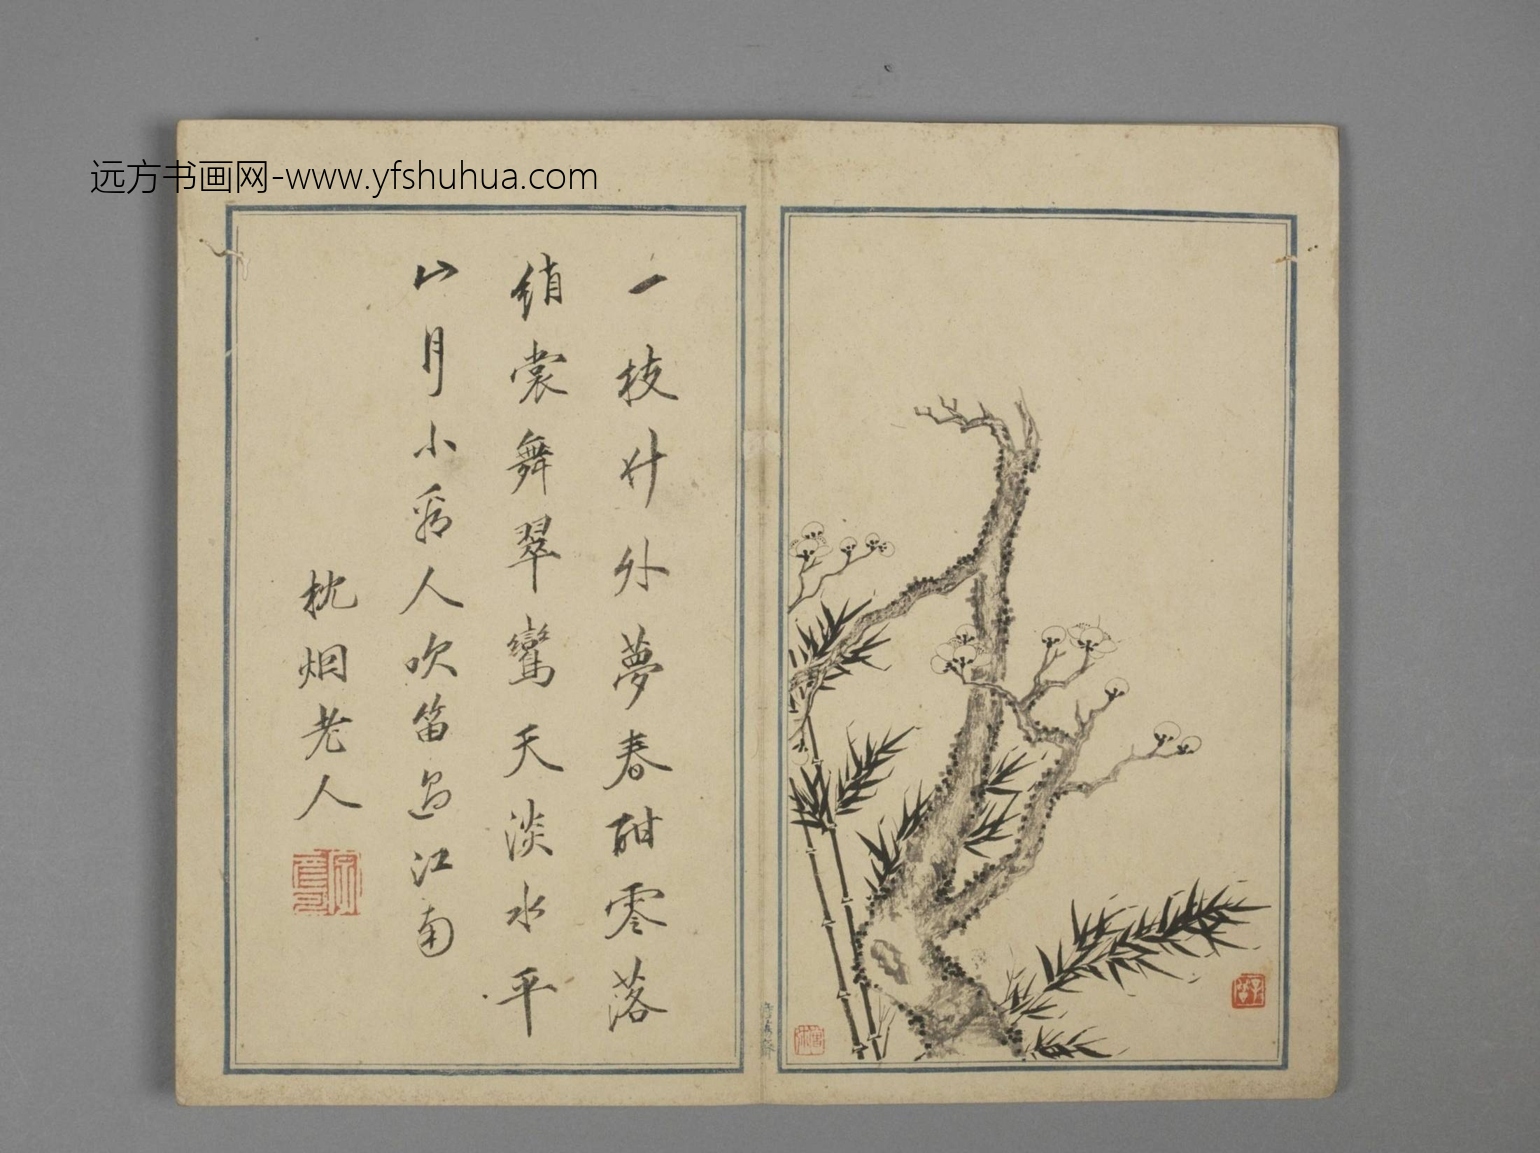 远方书画网-www.yfshuhua.com
一枝竹外夢春酣零落
綃裳舞翠鸞天淡水平
山月小有人吹笛過江南
枕烟老人